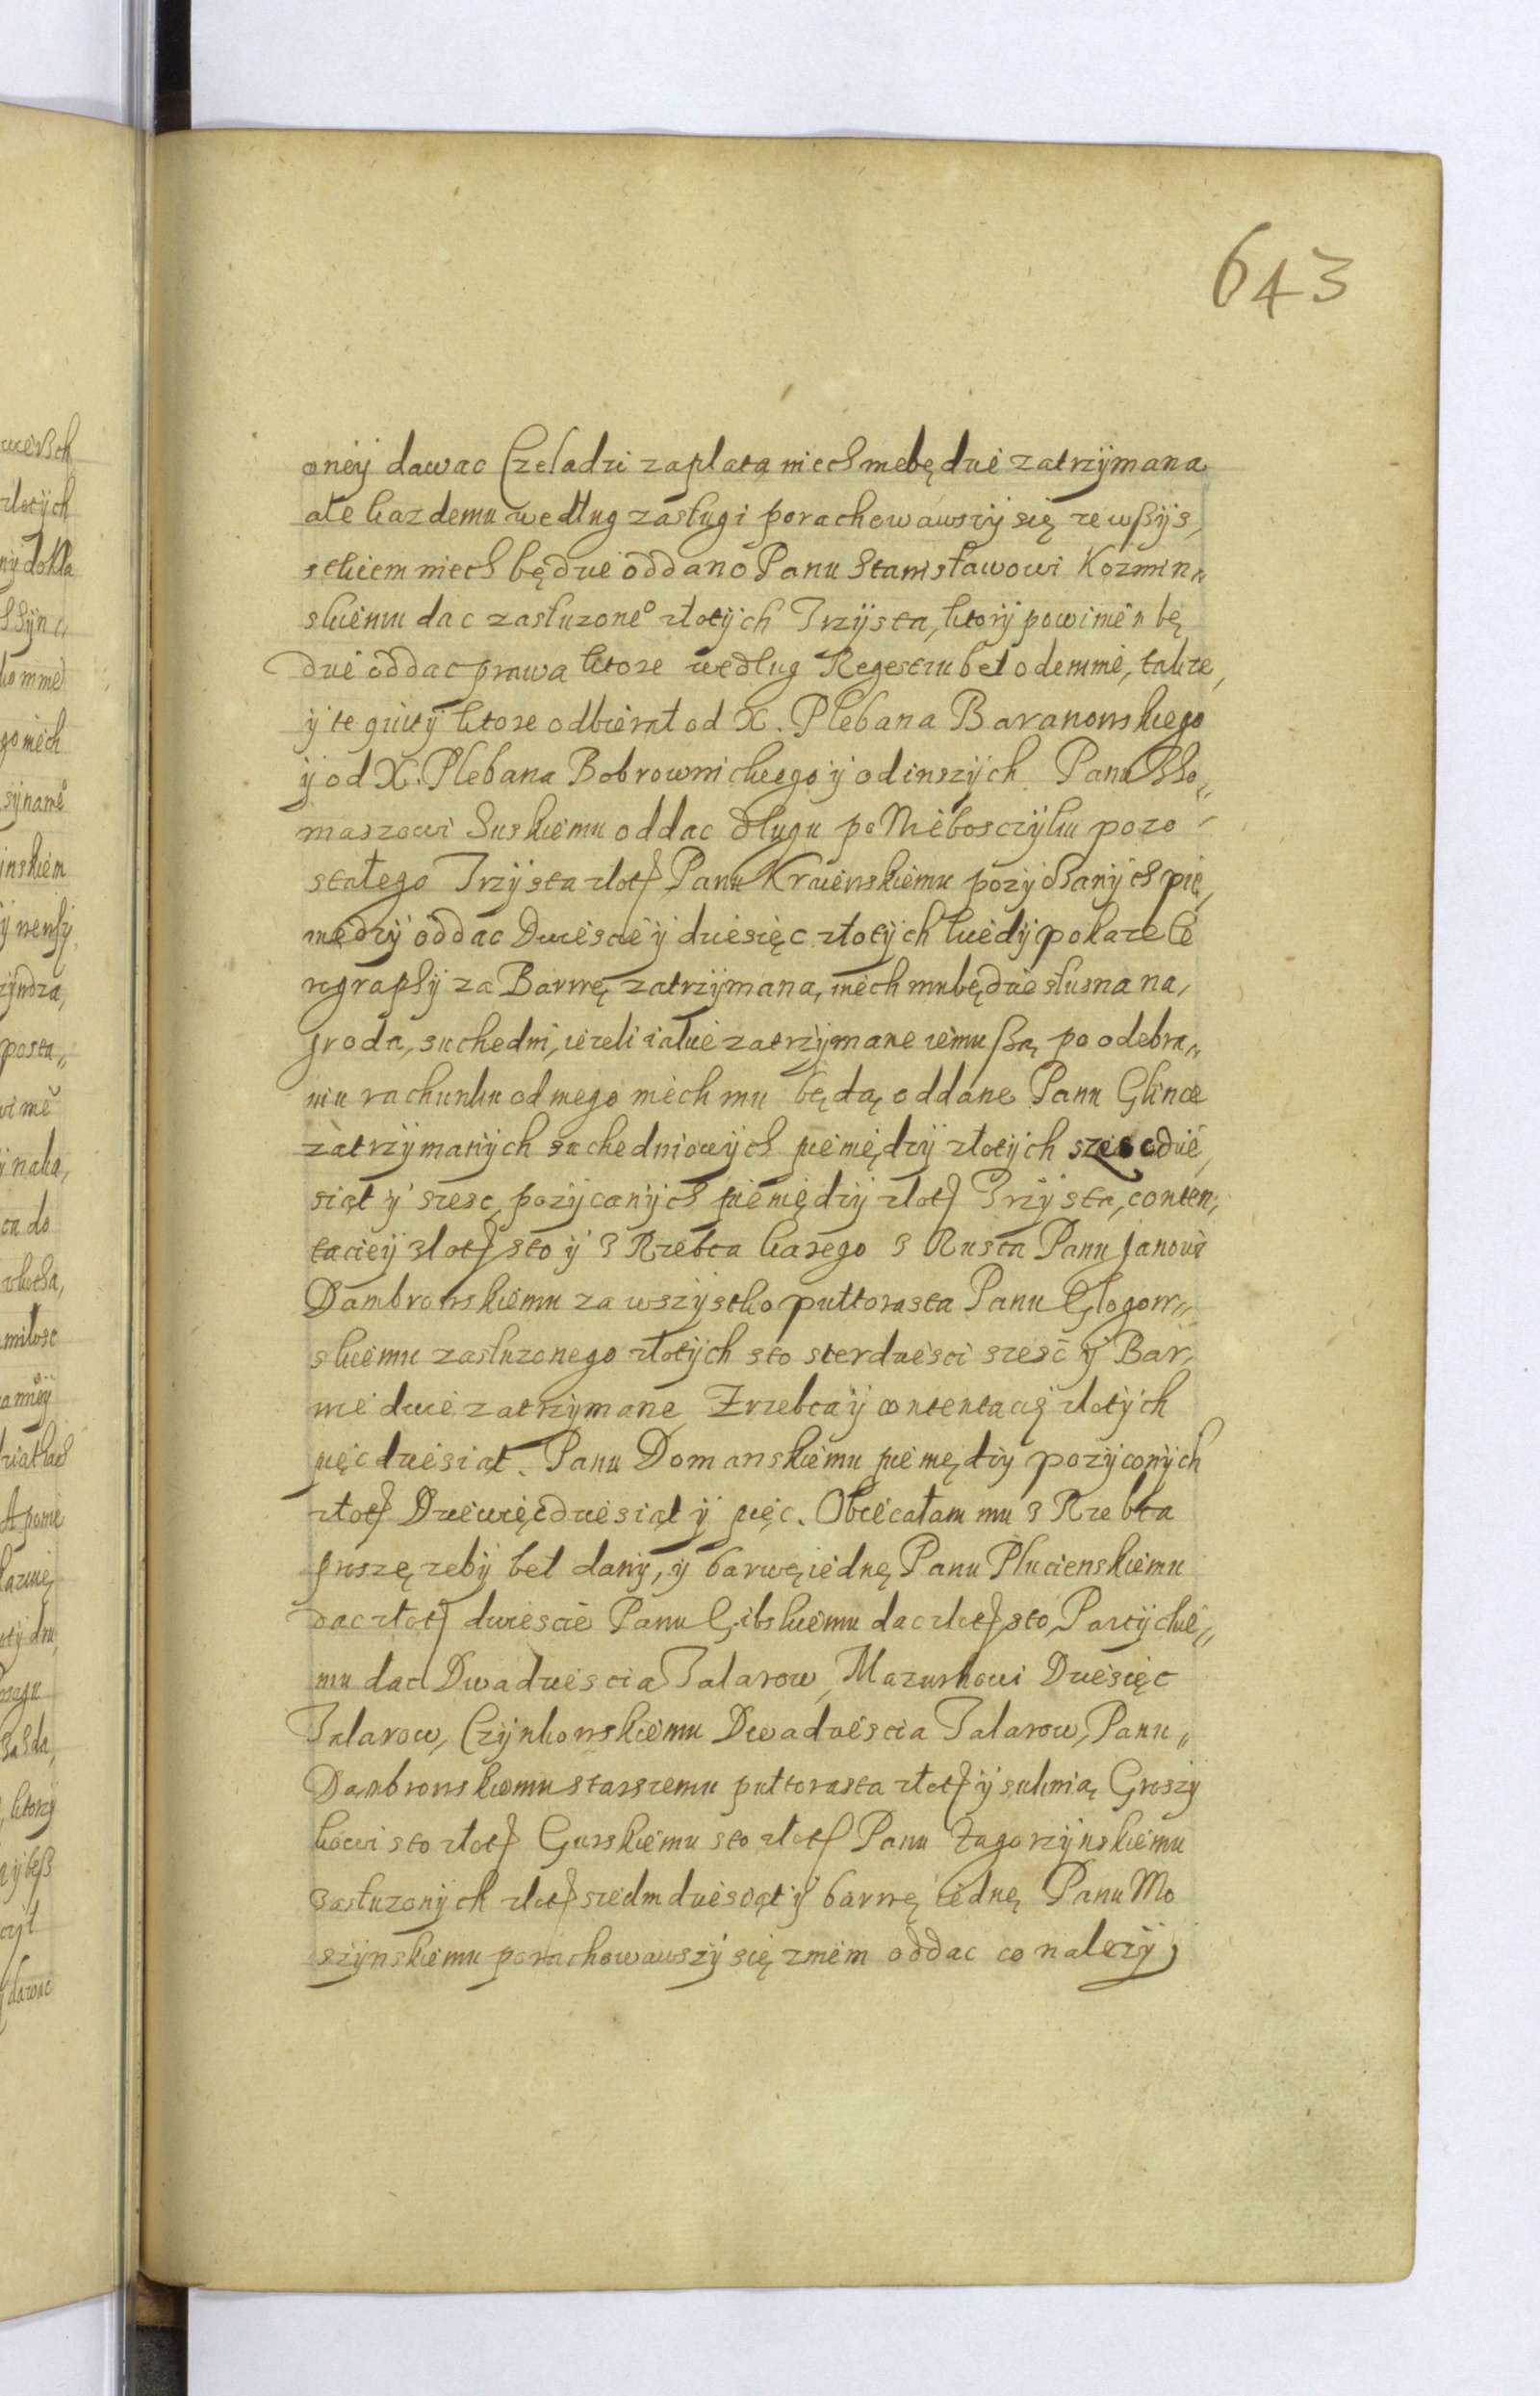 643
oney dawac Czeladzi zapłata niech niebędzie zatrzymana
ale kazdemu według zasługi porachowawszy się ze wßys,
stkiem niech będzie oddano Panu Stanisławowi Kozmin„
skiemu dac zasłuzone° złotych Trzysta, ktory powinien bę
dzie oddac prawa ktore według Regestru beł odemnie, takze,
y te quity ktore odbierał od X. Plebana Baranowskiego
y od X. Plebana Bobrownickiego y od inszych Panu Tho„
maszowi Suskiemu oddac długu po Niebosczyku pozo-
stałego Trzysta złot Panu Kraienskiemu pozyczanych pie,
niędzy oddac Dwiescie y dziesięc złotych kiedy pokaze Ce
rography za Barwę zatrzymana, niech mu będzie słusna na,
groda, suchedni, iezeli iakie zatrzymane iemu ßą po odebra„
niu rachunku od niego niech mu będą oddane Panu Glince
zatrzymanych suchedniowych pieniędzy złotych szescdzie,
siąt y szesc, pozycanych pieniędzy złot Trzysta, conten,
taciey złot sto y 3 Rzebca karego 3 Rusca Panu Janowi
Dambrowskiemu za wszystko pułtorasta Panu Głogow„
skiemu zasłuzonego złotych sto sterdziesci szesc y Bar,
wie dwie zatrzymane Zrzebca y contentacią złotych
pięcdziesiąt. Panu Domanskiemu pieniędzy pozyconych
złot Dziewięcdziesiąt y pięc. Obiecałam mu 3 Rzebca
proszę zeby beł dany, y barwę iednę Panu Płucienskiemu
dac złot dwiescie Panu Gibskiemu dac złot sto, Partyckie„
mu dac Dwadziescia Talarow, Mazurkowi Dziesięc
Talarow, Czynkowskiemu Dwadziescia Talarow, Panu„
Dambrowskiemu starszemu pułtorasta złot y suknią Groszy
kowi sto złot Gurskiemu sto złot Panu Zagorzynskiemu
zasłuzonych złot siedmdziesiąt y barwę iednę Panu Mo
szynskiemu porachowawszy się zniem oddac co nalezy;